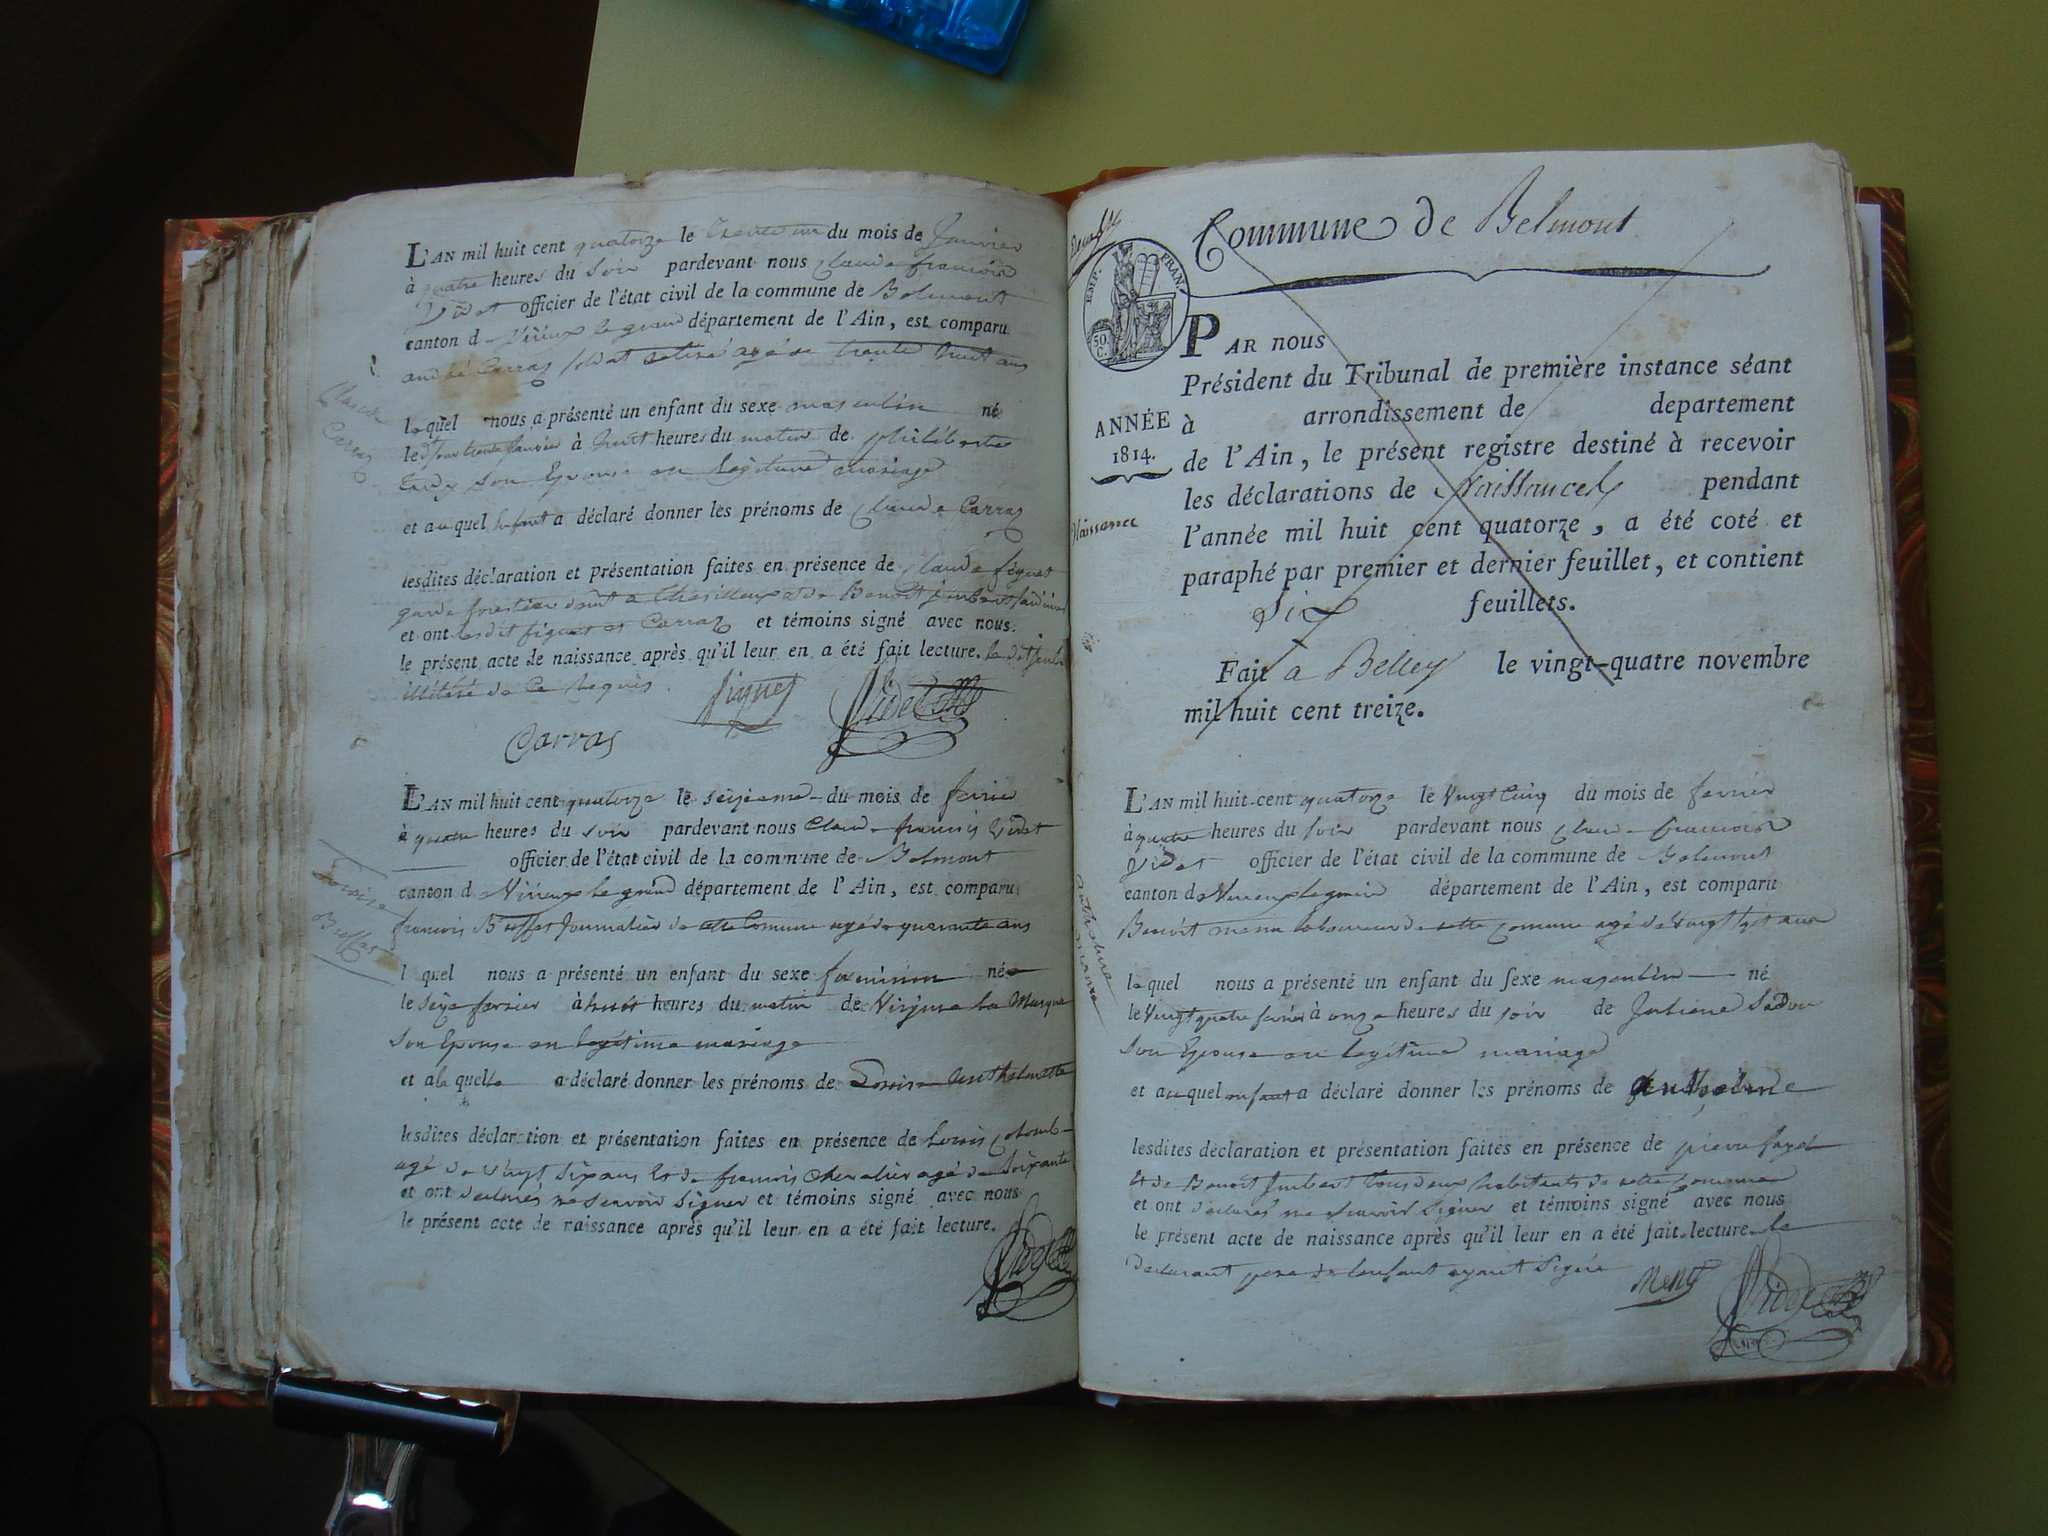 L'AN mil huit cent quatorze le trente un du mois de Janvier
à quatre heures du soir pardevant nous Claude françois
Videt officier de l'état civil de la commune de Belmont
canton de Virieux le grand département de l'Ain, est comparu
andré Carraz soldat retiré agé de trente huit ans
Claude
Carraz
lequel nous a présenté un enfant du sexe masculin né
le jour trente Janvier à huit heures du matin de philiberte
son Epouse en legitime mariage
et auquel enfant a déclaré donner les prénoms de Claude Carraz
lesdites déclaration et présentation faites en présence de Claude
garde forestier et de Benoît Jimbert
et ont lesdit et Carraz et témoins signé avec nous.
le présent acte de naissance après qu'il leur en a été fait lecture. le dit
illitéré de ce requis.
Videt
Carras
L'AN mil huit cent quatorze le seizieme du mois de fevrier
à quatre heures du soir pardevant nous Claude françois Videt
officier de l'état civil de la commune de Belmont
canton de Virieux le grand département de l'Ain, est comparu
françois Buffet Journalier de cette Commune agé de quarante ans
Louise
l quel nous a présenté un enfant du sexe foeminin née
le Seize fevrier à huit heures du matin de Virjine la
son Epouse en legitime mariage
et a la quelle a déclaré donner les prénoms de Louise Anthelmette
lesdites déclaration et présentation faites en présence de Louis Colomb
agé de vingt six ans et de françois Chevalier agé de soixante
et ont declarés ne scavoir signer et témoins signé avec nous
le présent acte de naissance après qu'il leur en a été fait lecture.
Videt
Commune de Belmont
EMP. FRAN.
50 C.
ANNÉE
1814.
Naissance
PAR nous
Président du Tribunal de première instance séant
à arrondissement de departement
de l'Ain, le présent registre destiné à recevoir
les déclarations de Naissances pendant
l'année mil huit cent quatorze, a été coté et
paraphé par premier et dernier feuillet, et contient
Six feuillets.
Fait a Belley le vingt-quatre novembre
mil huit cent treize.
L'AN mil huit-cent quatorze le vingt cinq du mois de fevrier
à quatre heures du soir pardevant nous Claude françois
Videt officier de l'état civil de la commune de Belmont
canton de Virieux le grand département de l'Ain, est comparu
Benoît laboureur de cette commune agé de vingt ans
lequel nous a présenté un enfant du sexe masculin né
le vingt quatre fevrier à onze heures du soir de Juliene
son Epouse en legitime mariage
et auquel enfant a déclaré donner les prénoms de Anthelme
lesdites déclaration et présentation faites en présence de pierre
et de Benoît Jimbert tous deux habitants de cette Commune
et ont declarés ne scavoir signer et témoins signé avec nous
le présent acte de naissance après qu'il leur en a été fait lecture le
declarant pere de lenfant ayant signé
Videt